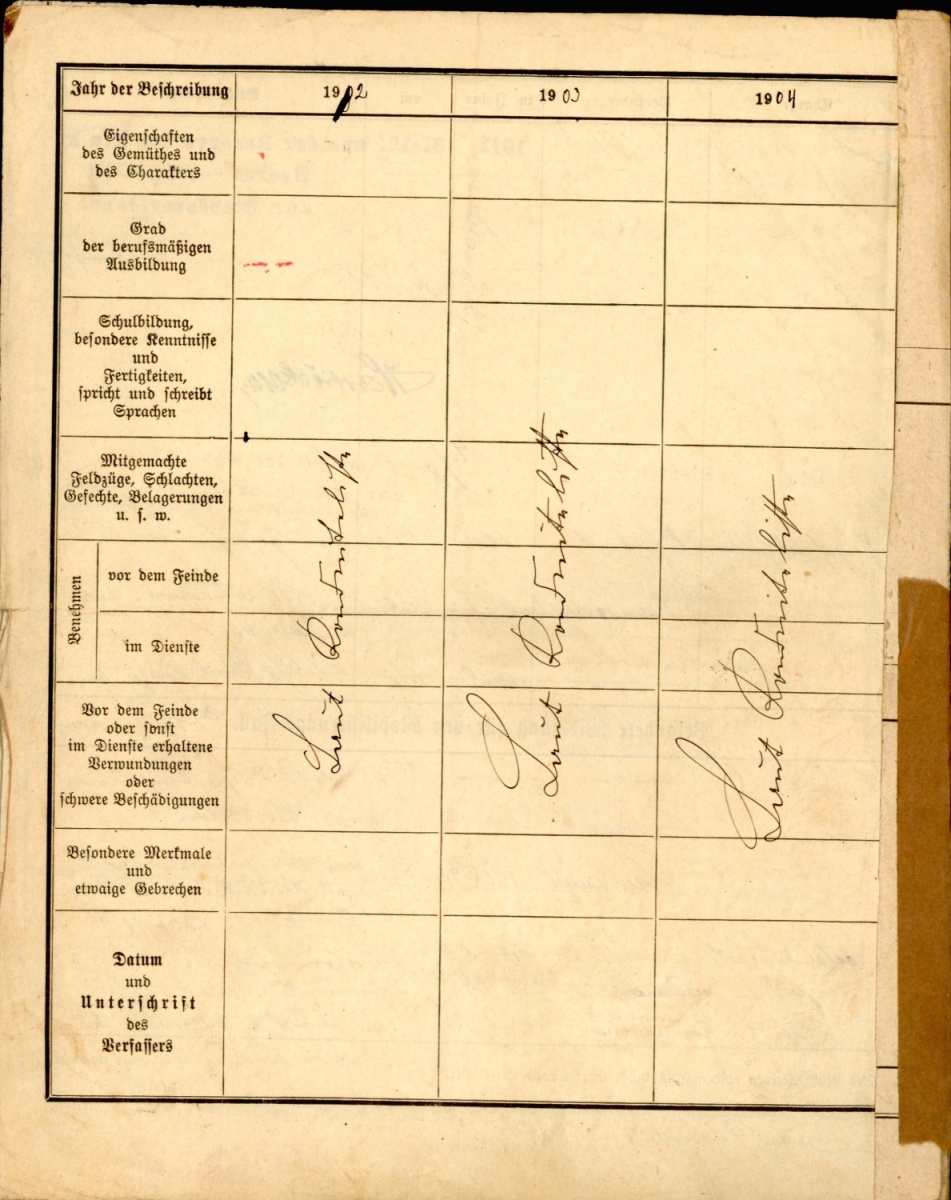 Jahr der Beschreibung
1902
1903
1904
Eigenschaften
des Gemüthes und
des Charakters
Grad
der berufsmäßigen
Ausbildung
Schulbildung,
besondere Kenntnisse
und
Fertigkeiten,
spricht und schreibt
Sprachen
Mitgemachte
Feldzüge, Schlachten,
Gefechte, Belagerungen
u. s. w.
Benehmen
vor dem Feinde
im Dienste
Vor dem Feinde
oder sonst
im Dienste erhaltene
Verwundungen
oder
schwere Beschädigungen
Besondere Merkmale
und
etwaige Gebrechen
Datum
und
Unterschrift
des
Verfassers
Laut Konduiteliste
Laut Konduiteliste
Laut Konduiteliste